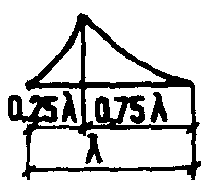 0.25λ 0.75λ
λ